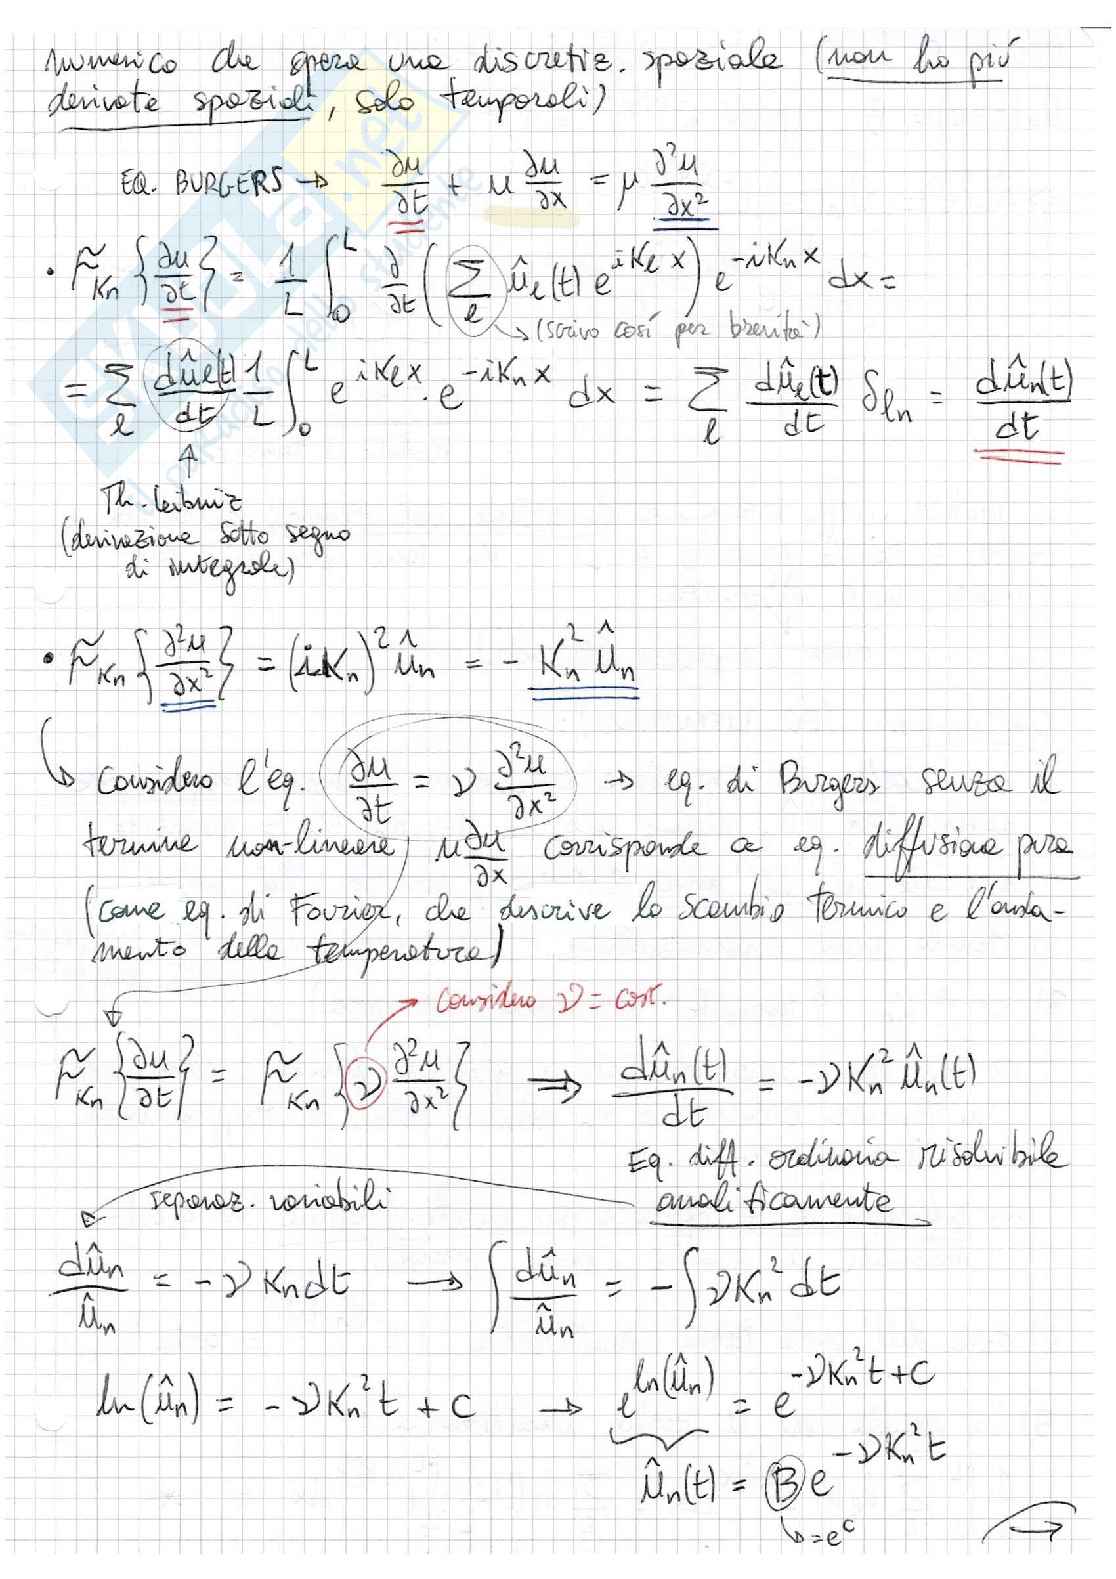 numerico che opera una discretiz. spaziale (non ho più
derivate spaziali, solo temporali)
EQ. BURGERS → ∂u/∂t + u ∂u/∂x = μ ∂²u/∂x²
• F̃_Kn {∂u/∂t} = 1/L ∫₀^L ∂/∂t (∑_l û_l(t) e^{iK_l x}) e^{-iK_n x} dx =
↳ (scrivo così per brevità)
= ∑_l dû_l(t)/dt 1/L ∫₀^L e^{iK_l x} · e^{-iK_n x} dx = ∑_l dû_l(t)/dt δ_ln = dû_n(t)/dt
Th. Leibniz
(derivazione sotto segno
di integrale)
• F̃_Kn {∂²u/∂x²} = (iK_n)² û_n = - K_n² û_n
↳ Considero l'eq. ∂u/∂t = ν ∂²u/∂x² → eq. di Burgers senza il
termine non-lineare u ∂u/∂x corrisponde a eq. diffusione pura
(come eq. di Fourier, che descrive lo scambio termico e l'anda-
mento della temperatura)
→ considero ν = cost.
F̃_Kn {∂u/∂t} = F̃_Kn {ν ∂²u/∂x²} ⟹ dû_n(t)/dt = -ν K_n² û_n(t)
Eq. diff. ordinaria risolvibile
separaz. variabili analiticamente
dû_n/û_n = - ν K_n dt → ∫ dû_n/û_n = - ∫ ν K_n² dt
ln(û_n) = - ν K_n² t + C → e^{ln(û_n)} = e^{-ν K_n² t + C}
û_n(t) = B e^{-ν K_n² t}
↳ = e^c
→